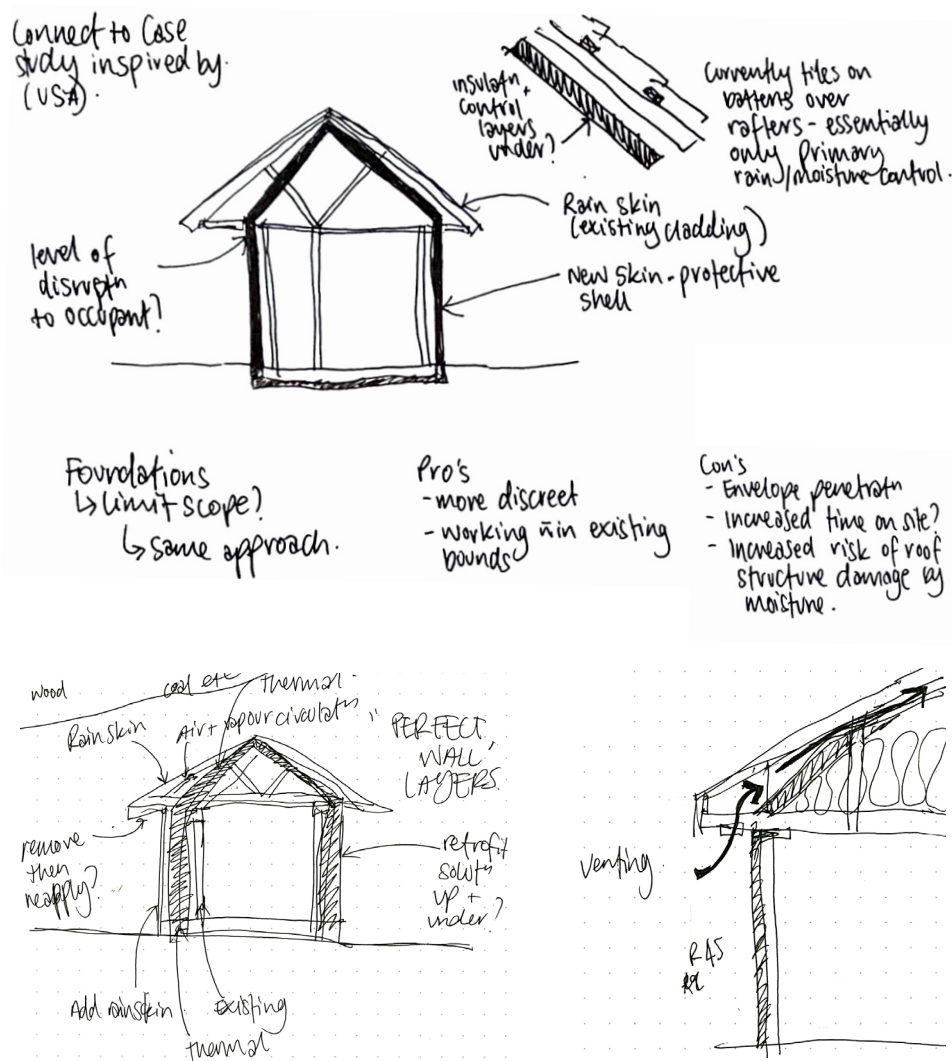 Connect to Case
study inspired by.
(USA).
insulatn +
control
layers
under?
Currently tiles on
battens over
rafters - essentially
only primary
rain/moisture control.
Rain skin
(existing cladding)
level of
disruptn
to occupant?
New skin - protective
shell
Foundations
↳ Limit scope?
↳ same approach.
Pro's
- more discreet
- working w̄in existing
bounds
Con's
- Envelope penetratn
- Increased time on site?
- Increased risk of roof
structure damage by
moisture.
wood
coal etc
thermal
Rainskin
Air + vapour circulatn
"PERFECT
WALL"
LAYERS.
remove
then
reapply?
retrofit
solutn
up +
under?
Add rainskin
Existing
thermal
venting
R45